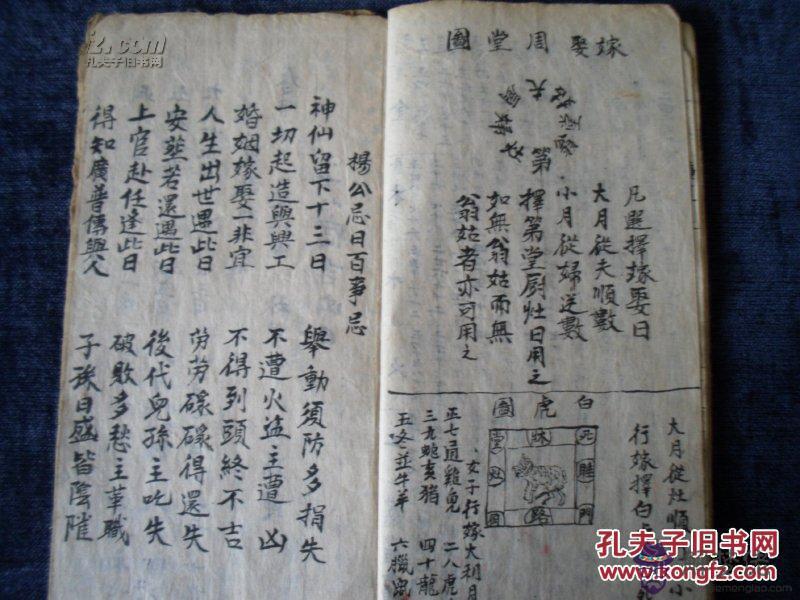 嫁娶周堂圖
夫姑
第
凡選擇嫁娶日
大月從夫順數
小月從婦逆數
擇第堂厨灶日用之
如無翁姑而無
翁姑者亦可用之
大月從灶順
行嫁擇白
小
白虎圖
死睡門
床
路
堂
女子行嫁大利月
正七迎雞兔
二八虎
三九蛇亥猪
四十龍
五冬並牛羊
六臘鼠
楊公忌日百事忌
神仙留下十三日
舉動須防多損失
一切起造興與工
不遭火盗主遭凶
婚姻嫁娶一非宜
不得到頭終不吉
人生出世遇此日
劳劳碌碌得還失
安塟若還遇此日
後代兒孫主吃失
上官赴任逢此日
破敗多愁主革職
得知廣普傳與人
子孫日盛皆陰隲
孔夫子旧书网
孔夫子旧书网
www.kongfz.com